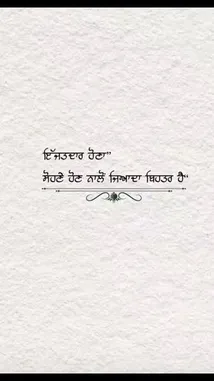 ਇੱਜਤਦਾਰ ਹੋਣਾ"
ਸੋਹਣੇ ਹੋਣ ਨਾਲੋਂ ਜਿਆਦਾ ਬਿਹਤਰ ਹੈ"